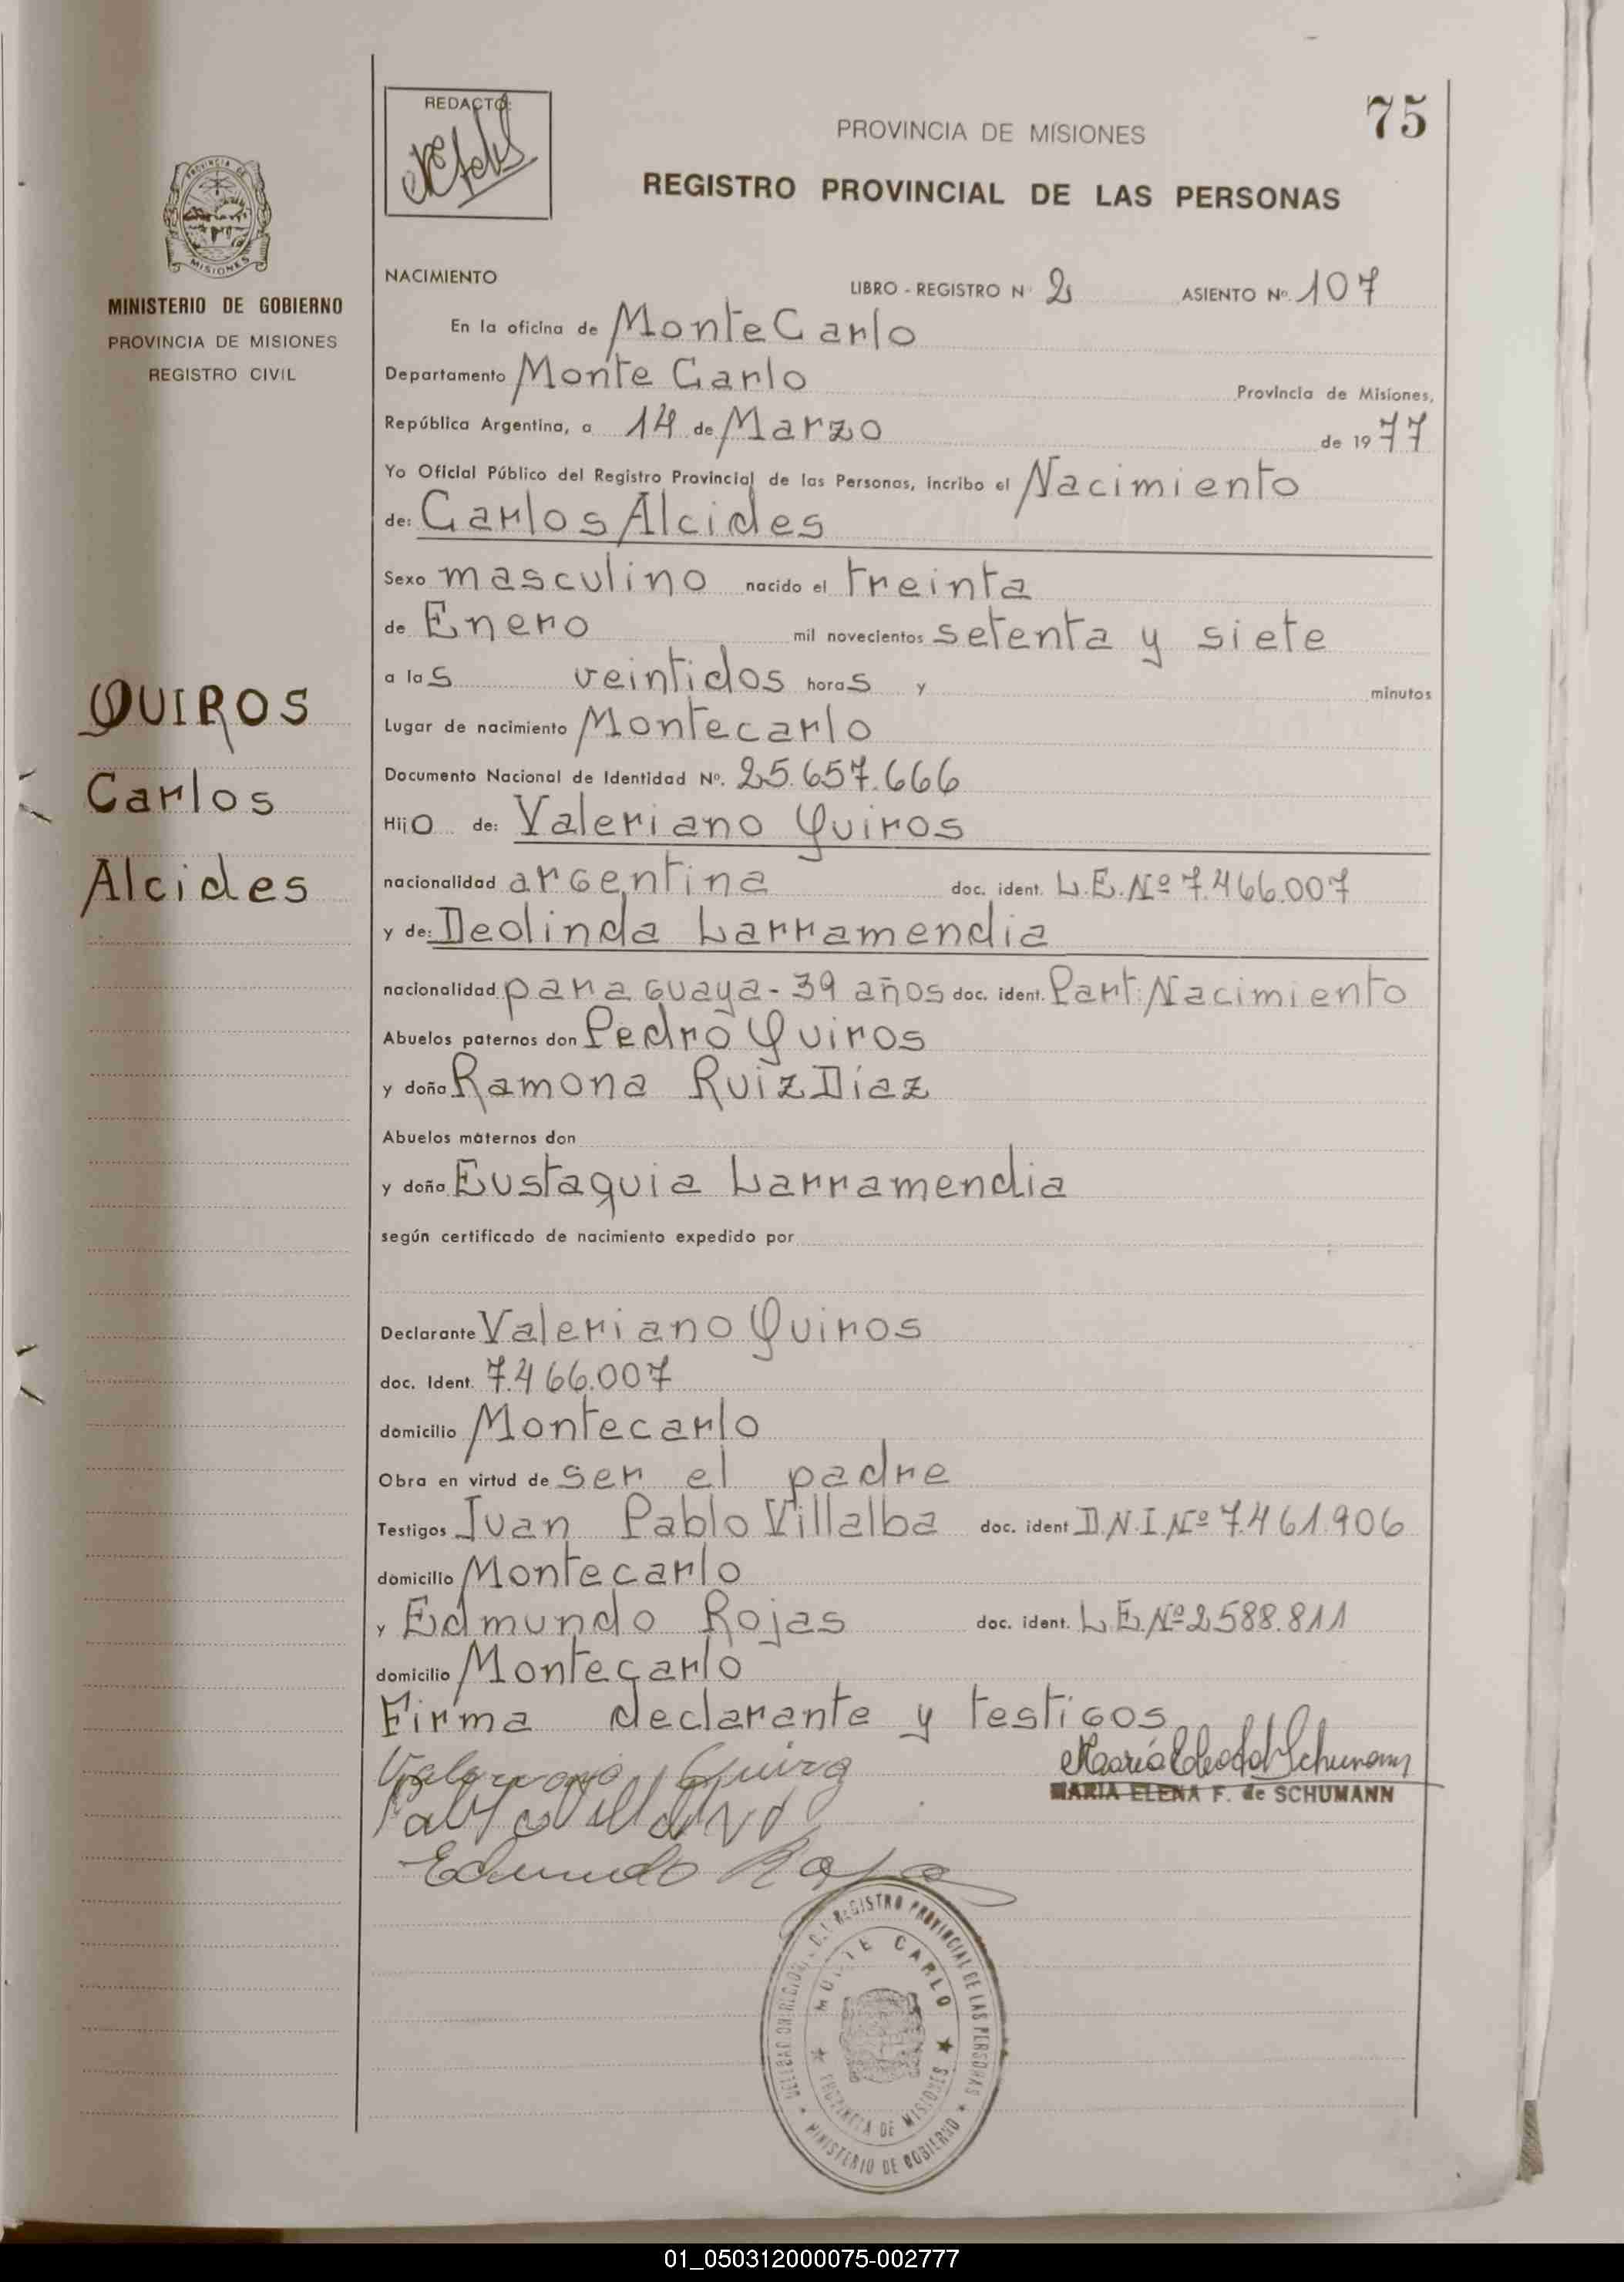 75
REDACTÓ:
PROVINCIA DE MISIONES
REGISTRO PROVINCIAL DE LAS PERSONAS
PROVINCIA DE
MISIONES
MINISTERIO DE GOBIERNO
PROVINCIA DE MISIONES
REGISTRO CIVIL
QUIROS
Carlos
Alcides
NACIMIENTO LIBRO - REGISTRO N 2 ASIENTO Nº. 107
En la oficina de Monte Carlo
Departamento Monte Carlo Provincia de Misiones,
República Argentina, a 14 de Marzo de 1977
Yo Oficial Público del Registro Provincial de las Personas, incribo el Nacimiento
de: Carlos Alcides
Sexo masculino nacido el treinta
de Enero mil novecientos setenta y siete
a las veintidos horas y minutos
Lugar de nacimiento Montecarlo
Documento Nacional de Identidad Nº. 25.657.666
Hijo de: Valeriano Quiros
nacionalidad argentina doc. ident. L.E.Nº 7.466.007
y de: Deolinda Larramendia
nacionalidad paraguaya - 39 años doc. ident. Part. Nacimiento
Abuelos paternos don Pedro Quiros
y doña Ramona Ruiz Díaz
Abuelos maternos don
y doña Eustaquia Larramendia
según certificado de nacimiento expedido por
Declarante Valeriano Quiros
doc. Ident. 7.466.007
domicilio Montecarlo
Obra en virtud de ser el padre
Testigos Juan Pablo Villalba doc. ident D.N.I.Nº 7.461.906
domicilio Montecarlo
y Edmundo Rojas doc. ident. L.E.Nº 2588.811
domicilio Montecarlo
Firma declarante y testigos
MARIA ELENA F. de SCHUMANN
Edmundo Rojas
REGISTRO PROVINCIAL DE LAS PERSONAS
MONTE CARLO
PROVINCIA DE MISIONES
MINISTERIO DE GOBIERNO
01_050312000075-002777